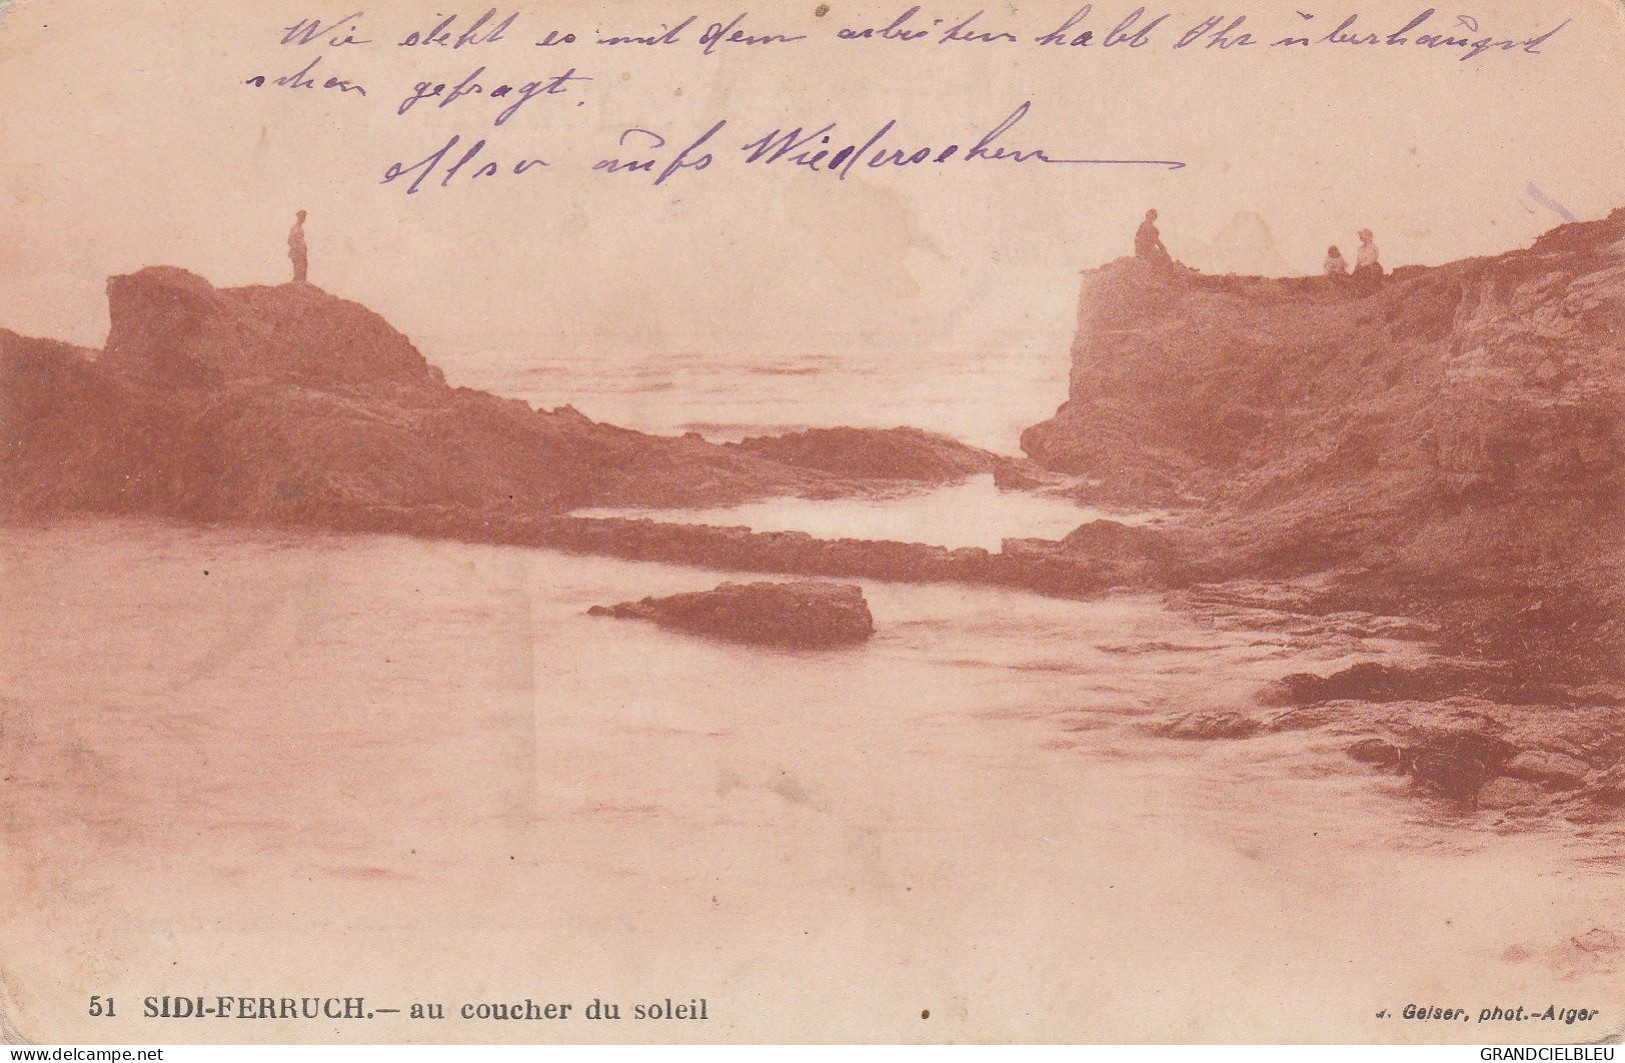 Wie steht es mit dem arbeiten habt Ihr überhaupt
schon gefragt.
Also aufs Wiedersehen
51 SIDI-FERRUCH.— au coucher du soleil
J. Geiser, phot.-Alger
www.delcampe.net
GRANDCIELBLEU